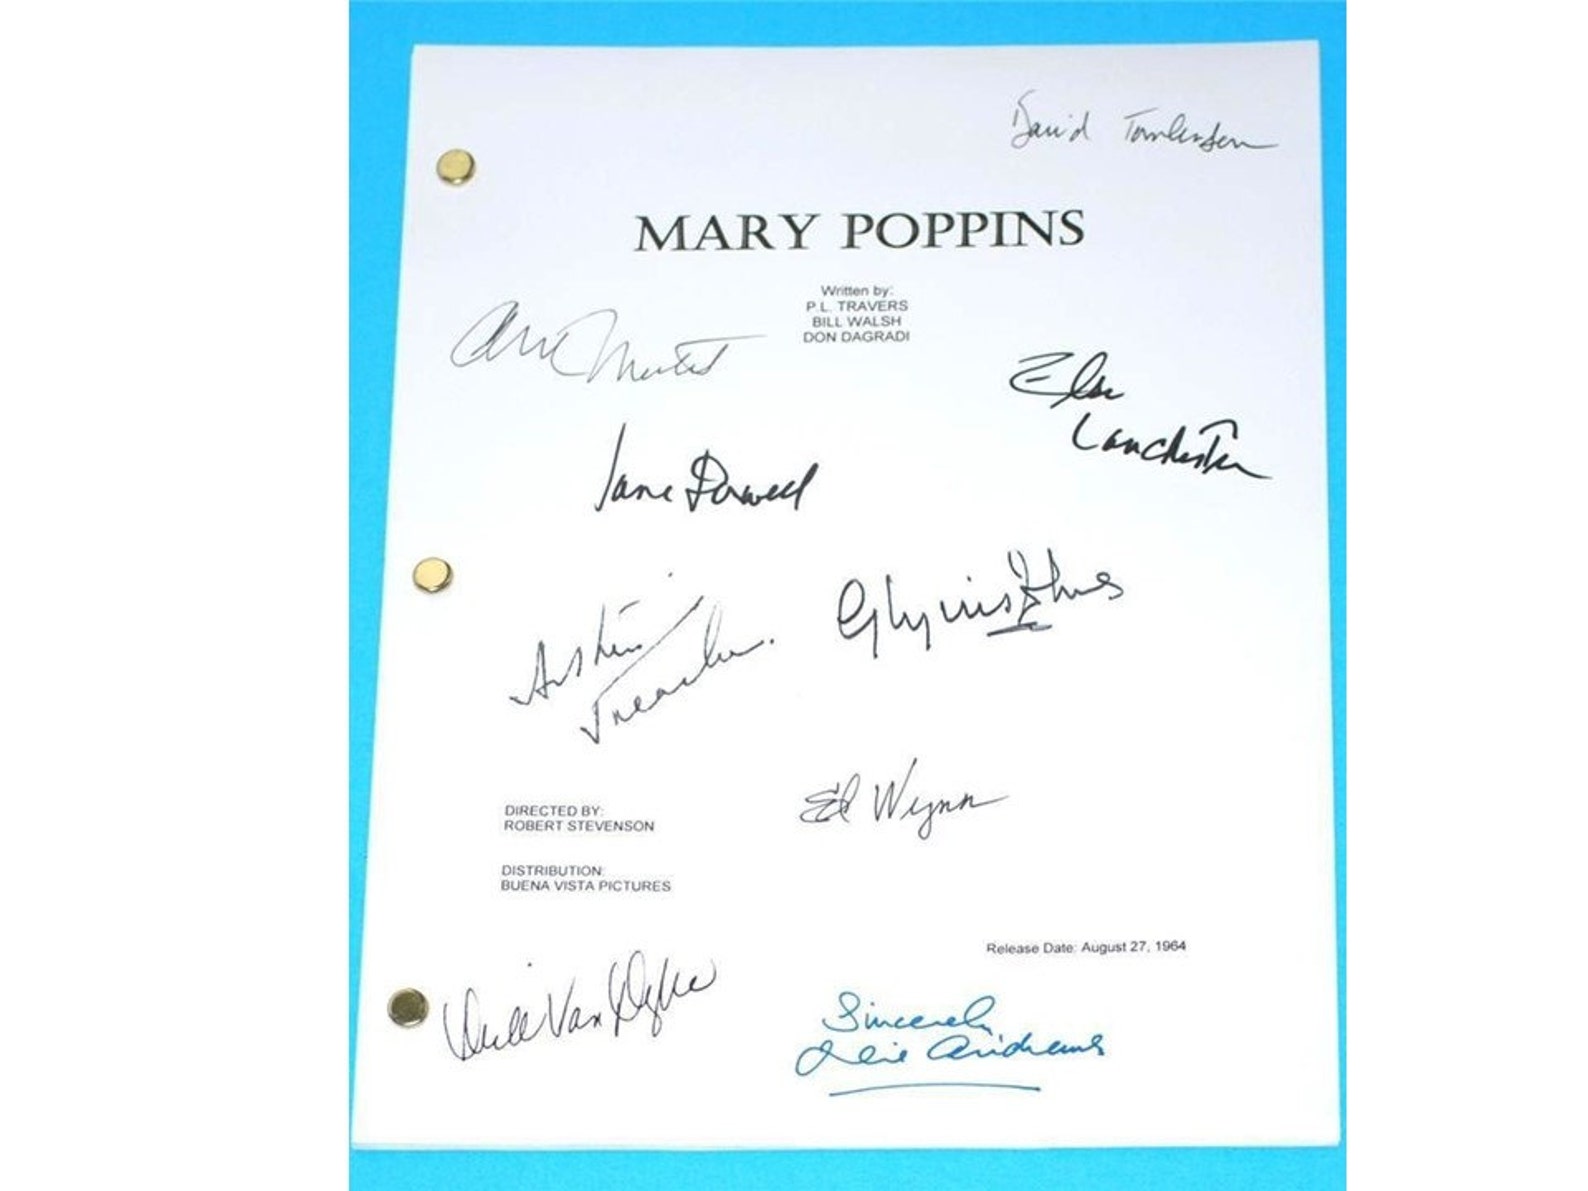 David Tomlinson
MARY POPPINS
Written by:
P.L. TRAVERS
BILL WALSH
DON DAGRADI
Elsa
Lanchester
Jane Darwell
Glynis Johns
Arthur
Treacher.
Ed Wynn
DIRECTED BY:
ROBERT STEVENSON
DISTRIBUTION:
BUENA VISTA PICTURES
Release Date: August 27, 1964
Dick Van Dyke
Sincerely
Julie Andrews